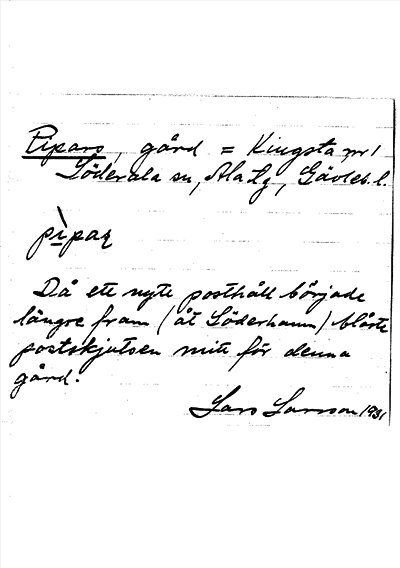 Pipars, gård = Kingsta nr 1
Söderala sn, Ala tg, Gävleb. l.
pìpaʀ
Då ett nytt posthåll började
längre fram (åt Söderhamn) blåste
postskjutsen mitt för denna
gård.
Lars Larsson 1931